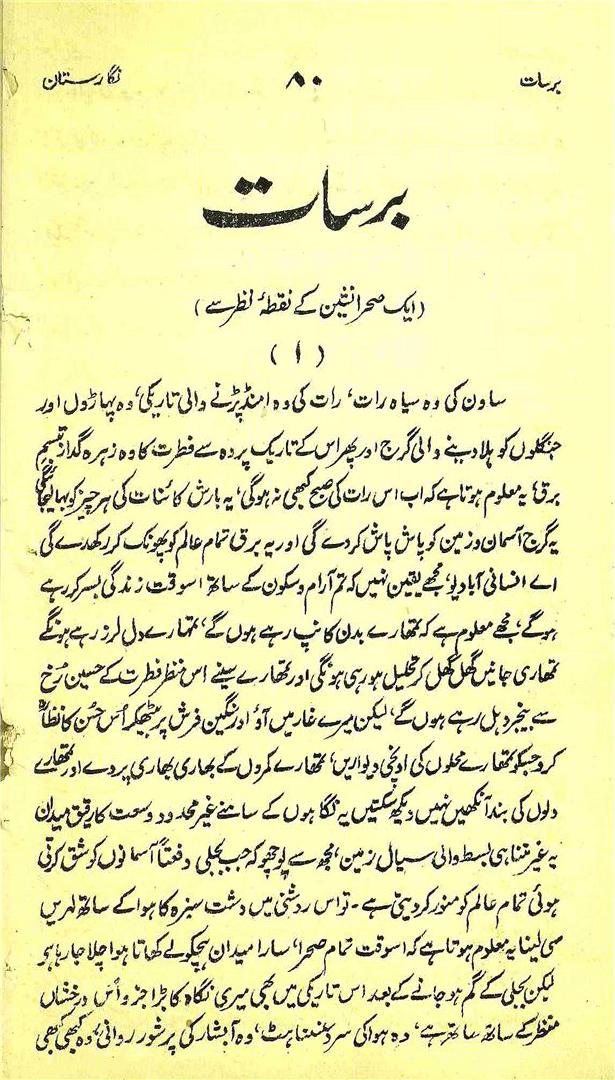 برسات ۸۰ نگارستان
برسات
(ایک صحرا نشین کے نقطۂ نظر سے)
(۱)
ساون کی وہ سیاہ رات، رات کی وہ امنڈ پڑنے والی تاریکی، وہ پہاڑوں اور
جنگلوں کو ہلا دینے والی گرج اور پھر اس کے تاریک پردہ سے فطرت کا وہ زہرہ گداز تبسم
برق! یہ معلوم ہوتا ہے کہ اب اس رات کی صبح کبھی نہ ہوگی، یہ بارش کائنات کی ہر چیز کو بہا لیجائیگی
یہ گرج آسمان و زمین کو پاش پاش کر دے گی اور یہ برق تمام عالم کو پھونک کر رکھدے گی
اے انسانی آبادیو، مجھے یقین نہیں کہ تم آرام و سکون کے ساتھ اسوقت زندگی بسر کر رہے
ہوگے، مجھے معلوم ہے کہ تمھارے بدن کانپ رہے ہوں گے، تمہارے دل لرز رہے ہونگے
تمھاری جانیں گھل گھل کر تحلیل ہو رہی ہونگی اور تمھارے سینے اس منظر فطرت کے حسین رُخ
سے بیخبر دہل رہے ہوں گے، لیکن میرے غار میں آؤ اور نگین فرش پر بیٹھکر اُس حُسن کا نظارہ
کرو جسکو تمھارے محلوں کی اونچی دیواریں، تمھارے کمروں کے بھاری بھاری پردے اور تمھارے
دلوں کی بند آنکھیں نہیں دیکھ سکتیں یہ نگاہوں کے سامنے غیر محدود وسعت کا رقیق میدان
یہ غیر متناہی بسط والی سیال زمین، مجھ سے پوچھو کہ جب بجلی دفعتاً آسمانوں کو شق کرتی
ہوئی تمام عالم کو منور کر دیتی ہے۔ تو اس روشنی میں دشت سبزہ کا ہوا کے ساتھ لہریں
سی لینا یہ معلوم ہوتا ہے کہ اسوقت تمام صحرا، سارا میدان ہچکولے کھاتا ہوا چلا جا رہا ہو
لیکن بجلی کے گم ہو جانے کے بعد اس تاریکی میں بھی میری نگاہ کا بڑا جزو اُس درخشاں
منظر کے ساتھ ساتھ ہے، وہ ہوا کی سرد سنسناہٹ، وہ آبشار کی پرشور روانی، وہ کبھی کبھی